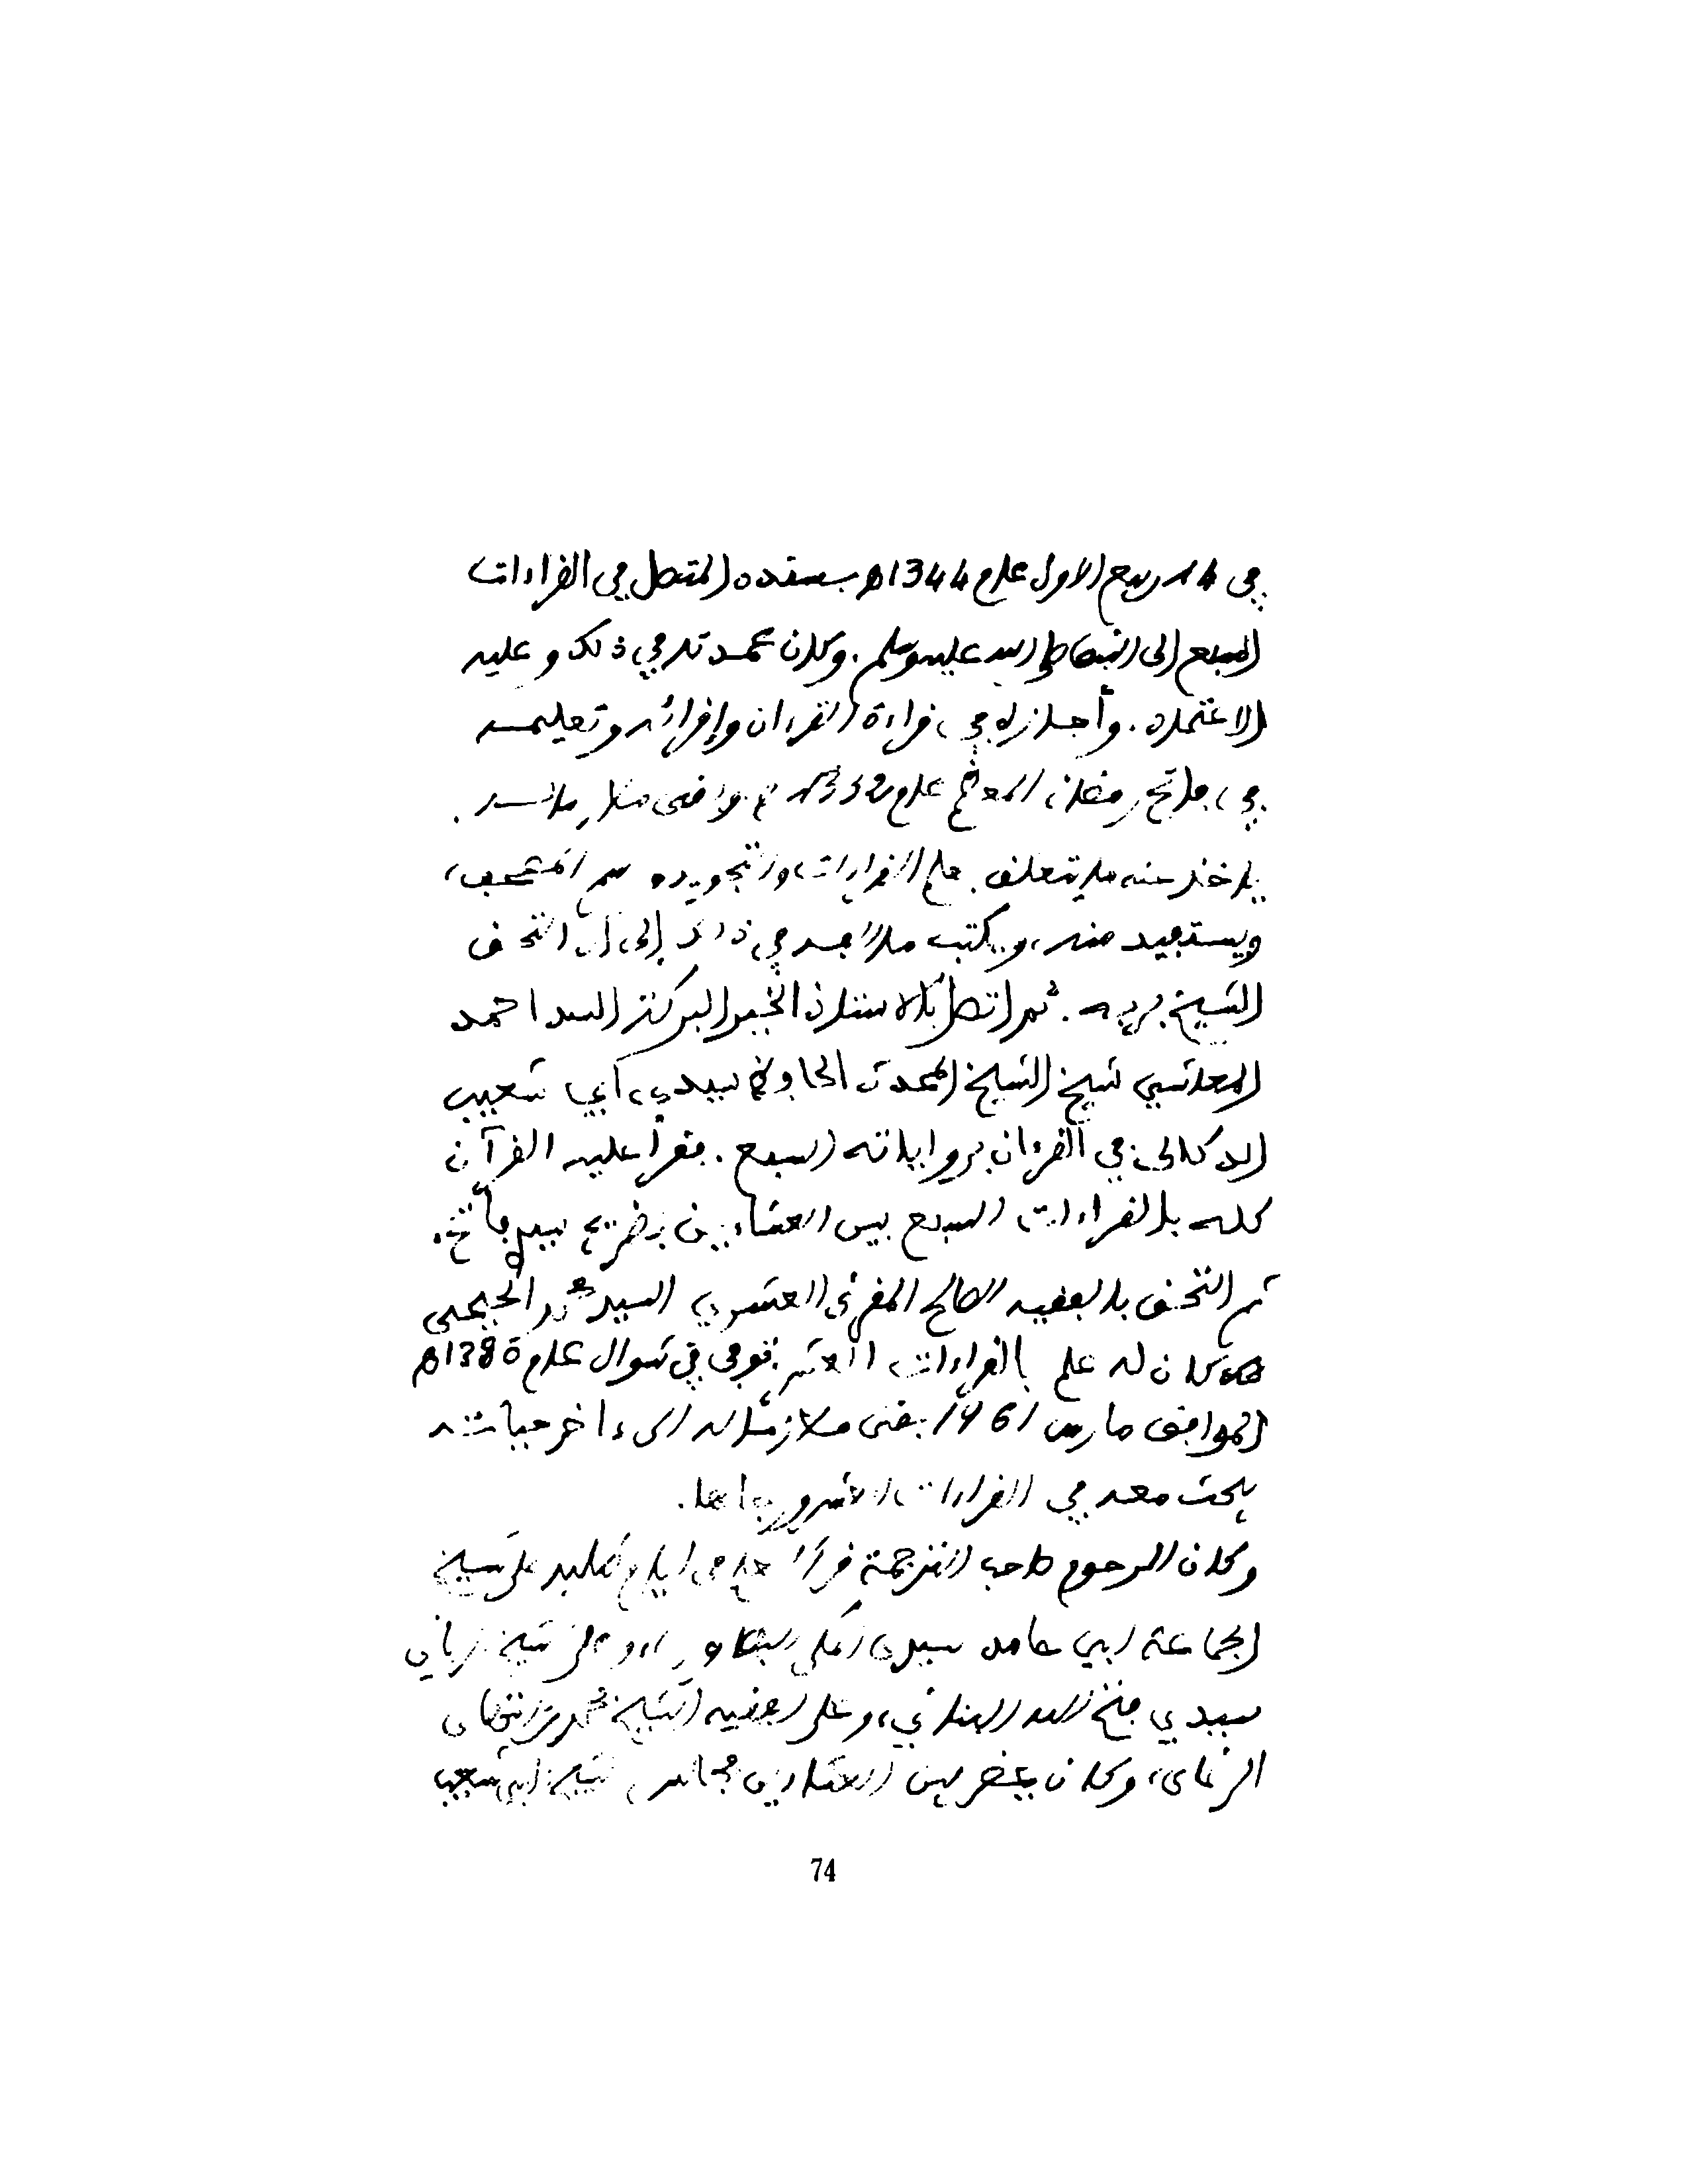 في 14 ربيع الاول عام 1344ه بسنده المتصل في القراءات
السبع إلى النبي صلى الله عليه وسلم. وكان عمدته في ذلك وعليه
الاعتماد. وأجازه في قراءة القرءان وإقرائه وتعليمه
في فاتح رمضان المعظم عام 1352
ياخذ عنه ما يتعلق بعلم القراءات والتجويد
ويستفيد منه، ويكتب ما راجعه في ذلك إلى أن التحق
الشيخ بربه. ثم اتصل بالاستاذ الخير البركة السيد احمد
المعاشي شيخ الشيخ المحدث الحافظ سيدي أبي شعيب
الدكالي في القرءان برواياته السبع. فقرأ عليه القرآن
كله بالقراءات السبع بين العشاءين بضريح سيدي فاتح.
ثم التحق بالفقيه الصالح المقرئ العشري السيد محمد الحيحي
كان له علم بالقراءات العشر. توفي في شوال عام 1380ه
الموافق مارس 1961 بقي ملازما له الى ءاخر حياته
يبحث معه في القراءات العشر
وكان المرحوم صاحب الترجمة قرأ في أيام طلبه على شيخ
الجماعة ابي حامد سيدي المكي البطاوري وعلى شيخ
سيدي فتح الله البناني، وعلى الفقيه الشيخ محمد بن التهامي
الرغاي، وكان يحضر بين العشاءين مجالس الشيخ ابي شعيب
74